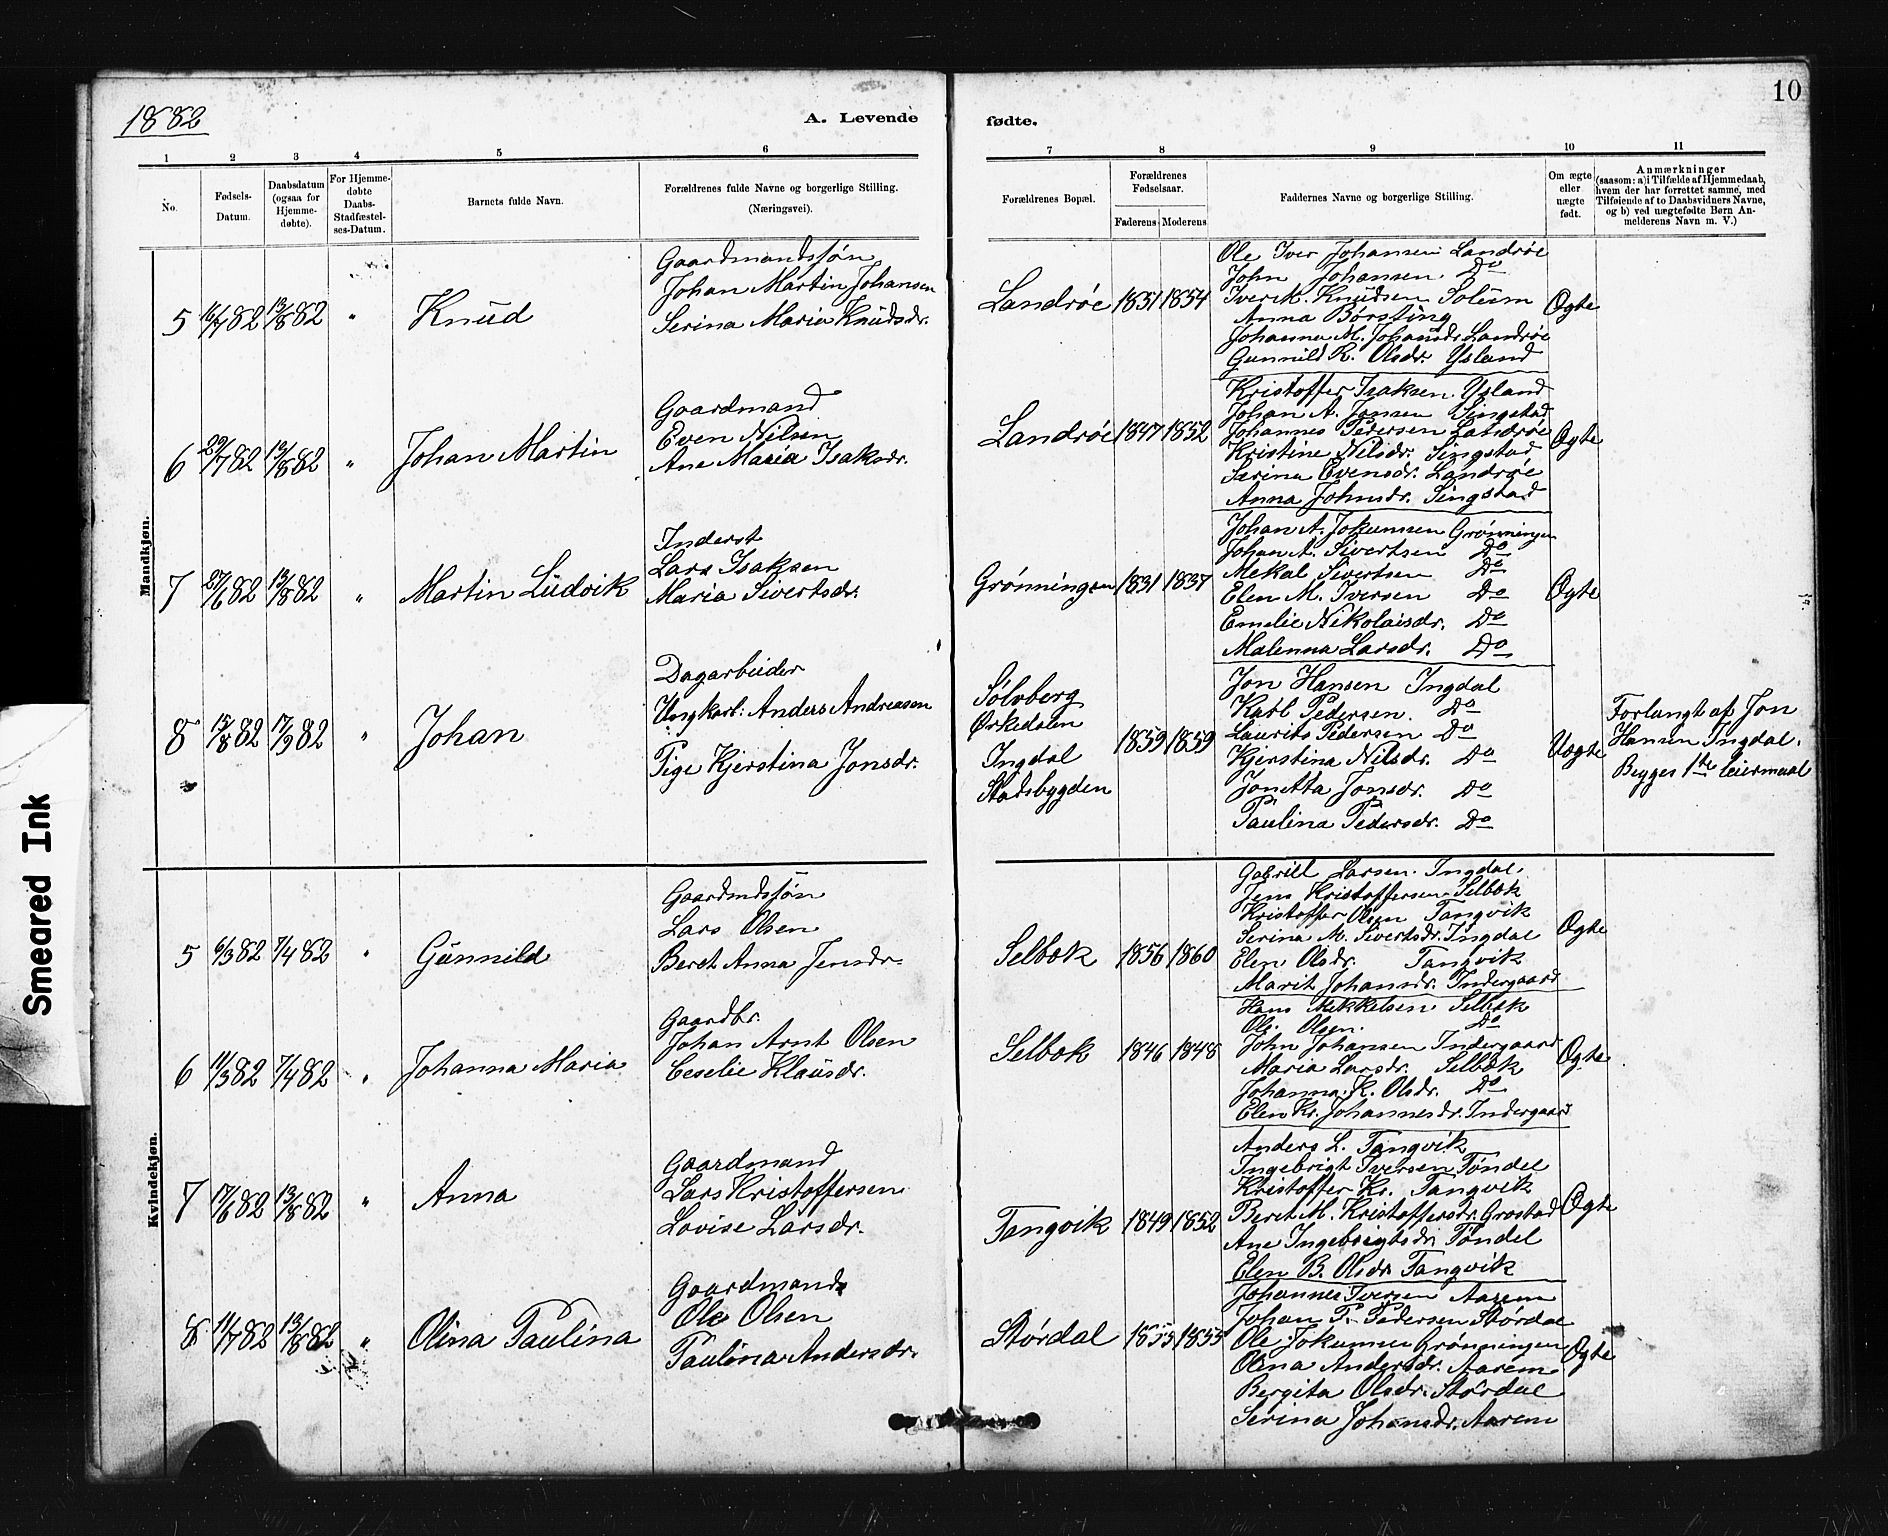 1882
A. Levende fødte.
10
1 2 3 4 5 6 7 8 9 10 11
No.
Fødsels-Datum.
Daabsdatum (ogsaa for Hjemme-døbte).
For Hjemme-døbte Daabs-Stadfæstel-ses-Datum.
Barnets fulde Navn.
Forældrenes fulde Navne og borgerlige Stilling. (Næringsvei).
Forældrenes Bopæl.
Forældrenes Fødselsaar.
Faderens Moderens
Faddernes Navne og borgerlige Stilling.
Om ægte eller uægte født.
Anmærkninger
(saasom: a) i Tilfælde af Hjemmedaab, hvem der har forrettet samme, med Tilføiende af to Daabsvidners Navne, og b) ved uægtefødte Børn An-melderens Navn m. V.)
Mandkjøn.
5 16/7 82 13/8 82 " Knud
Gaardmandssøn
Johan Martin Johansen
Serina Maria Knudsdr.
Landrøe 1851 1854
Ole Iver Johansen Landrøe
John Johansen Do
Iver K. Knudsen Solem
Anna Børsting
Johanna M. Johansdr. Landrøe
Gunnild K. Olsdr. Ysland
Ægte
6 29/7 82 13/8 82 " Johan Martin
Gaardmand
Even Nilsen
Ane Maria Isaksdr.
Landrøe 1847 1852
Kristoffer Isaksen Ysland
Johan A. Jonsen Singstad
Johannes Pedersen Landrøe
Kristine Nilsdr. Singstad
Serina Evensdr. Landrøe
Anna Johnsdr. Singstad
Ægte
7 27/6 82 13/8 82 " Martin Ludvik
Inderst
Lars Isaksen
Maria Sivertsdr.
Grønningen 1831 1837
Johan A. Jokumsen Grønningen
Johan A. Sivertsen Do
Mekal Sivertsen Do
Elen M. Iversen Do
Emelie Nikolaisdr. Do
Malenna Larsdr. Do
Ægte
8 15/8 82 17/9 82 " Johan
Dagarbeider
Ungkarl: Anders Andreasen
Pige Kjerstina Jonsdr.
Sølvberg
Ørkedalen
Ingdal
Stadsbygden
1859 1859
Jon Hansen Ingdal
Karl Pedersen. Do
Laurits Pedersen Do
Kjerstina Nilsdr. Do
Jonetta Jonsdr. Do
Paulina Pedersdr. Do
Uægte
Forlangt af Jon
Hansen Ingdal.
Begges 1ste leiermaal
Kvindekjøn.
5 6/3 82 7/4 82 " Gunnild
Gaardmdssøn
Lars Olsen
Beret Anna Jensdr.
Selbæk 1856 1860
Gabriel Larsen Ingdal.
Jens Kristoffersen Selbæk
Kristoffer Olsen Tangvik
Serina M. Sivertsdr. Ingdal
Elen Olsdr. Tangvik
Marit Johansdr. Indergaard
Ægte
6 11/3 82 7/4 82 " Johanna Maria
Gaardbr.
Johan Arnt Olsen
Ceselie Klausdr.
Selbæk 1846 1848
Hans Mikkelsen Selbæk
Ole Olsen. Do
John Johansen Indergaard
Maria Larsdr. Selbæk
Johanna K. Olsdr. Do
Elen Kr. Johannesdr. Indergaard
Ægte
7 17/6 82 13/8 82 " Anna
Gaardmand
Lars Kristoffersen
Lovise Larsdr.
Tangvik 1849 1852
Anders L. Tangvik
Ingebrigt Iversen Tøndel
Kristoffer Kr. Tangvik
Beret M. Kristoffersdr. Grostad
Ane Ingebrigtsdr. Tøndel
Elen B. Olsdr. Tangvik
Ægte
8 11/7 82 13/8 82 " Olina Paulina
Gaardmand
Ole Olsen
Paulina Andersdr.
Størdal 1855 1853
Johannes Iversen Aarem
Johan P. Pedersen Størdal
Ole Jokumsen Grønningen
Olina Andersdr. Aarem
Bergita Olsdr. Størdal
Serina Johansdr. Aarem
Ægte
Smeared Ink